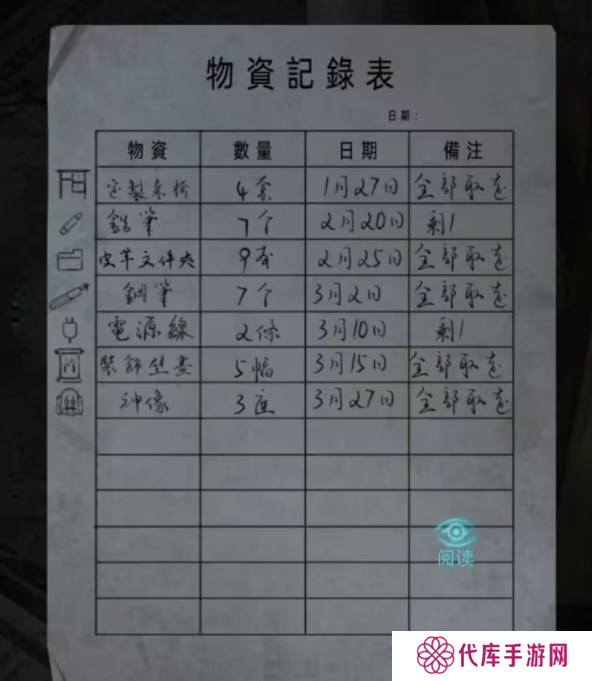 物資記錄表
日期：
物資 數量 日期 備注
定製桌椅 4套 1月27日 全部取走
鉛筆 7个 2月20日 剩1
皮革文件夾 9本 2月25日 全部取走
鋼筆 7个 3月2日 全部取走
電源線 2條 3月10日 剩1
裝飾壁畫 5幅 3月15日 全部取走
神像 3座 3月27日 全部取走
阅读
代库手游网